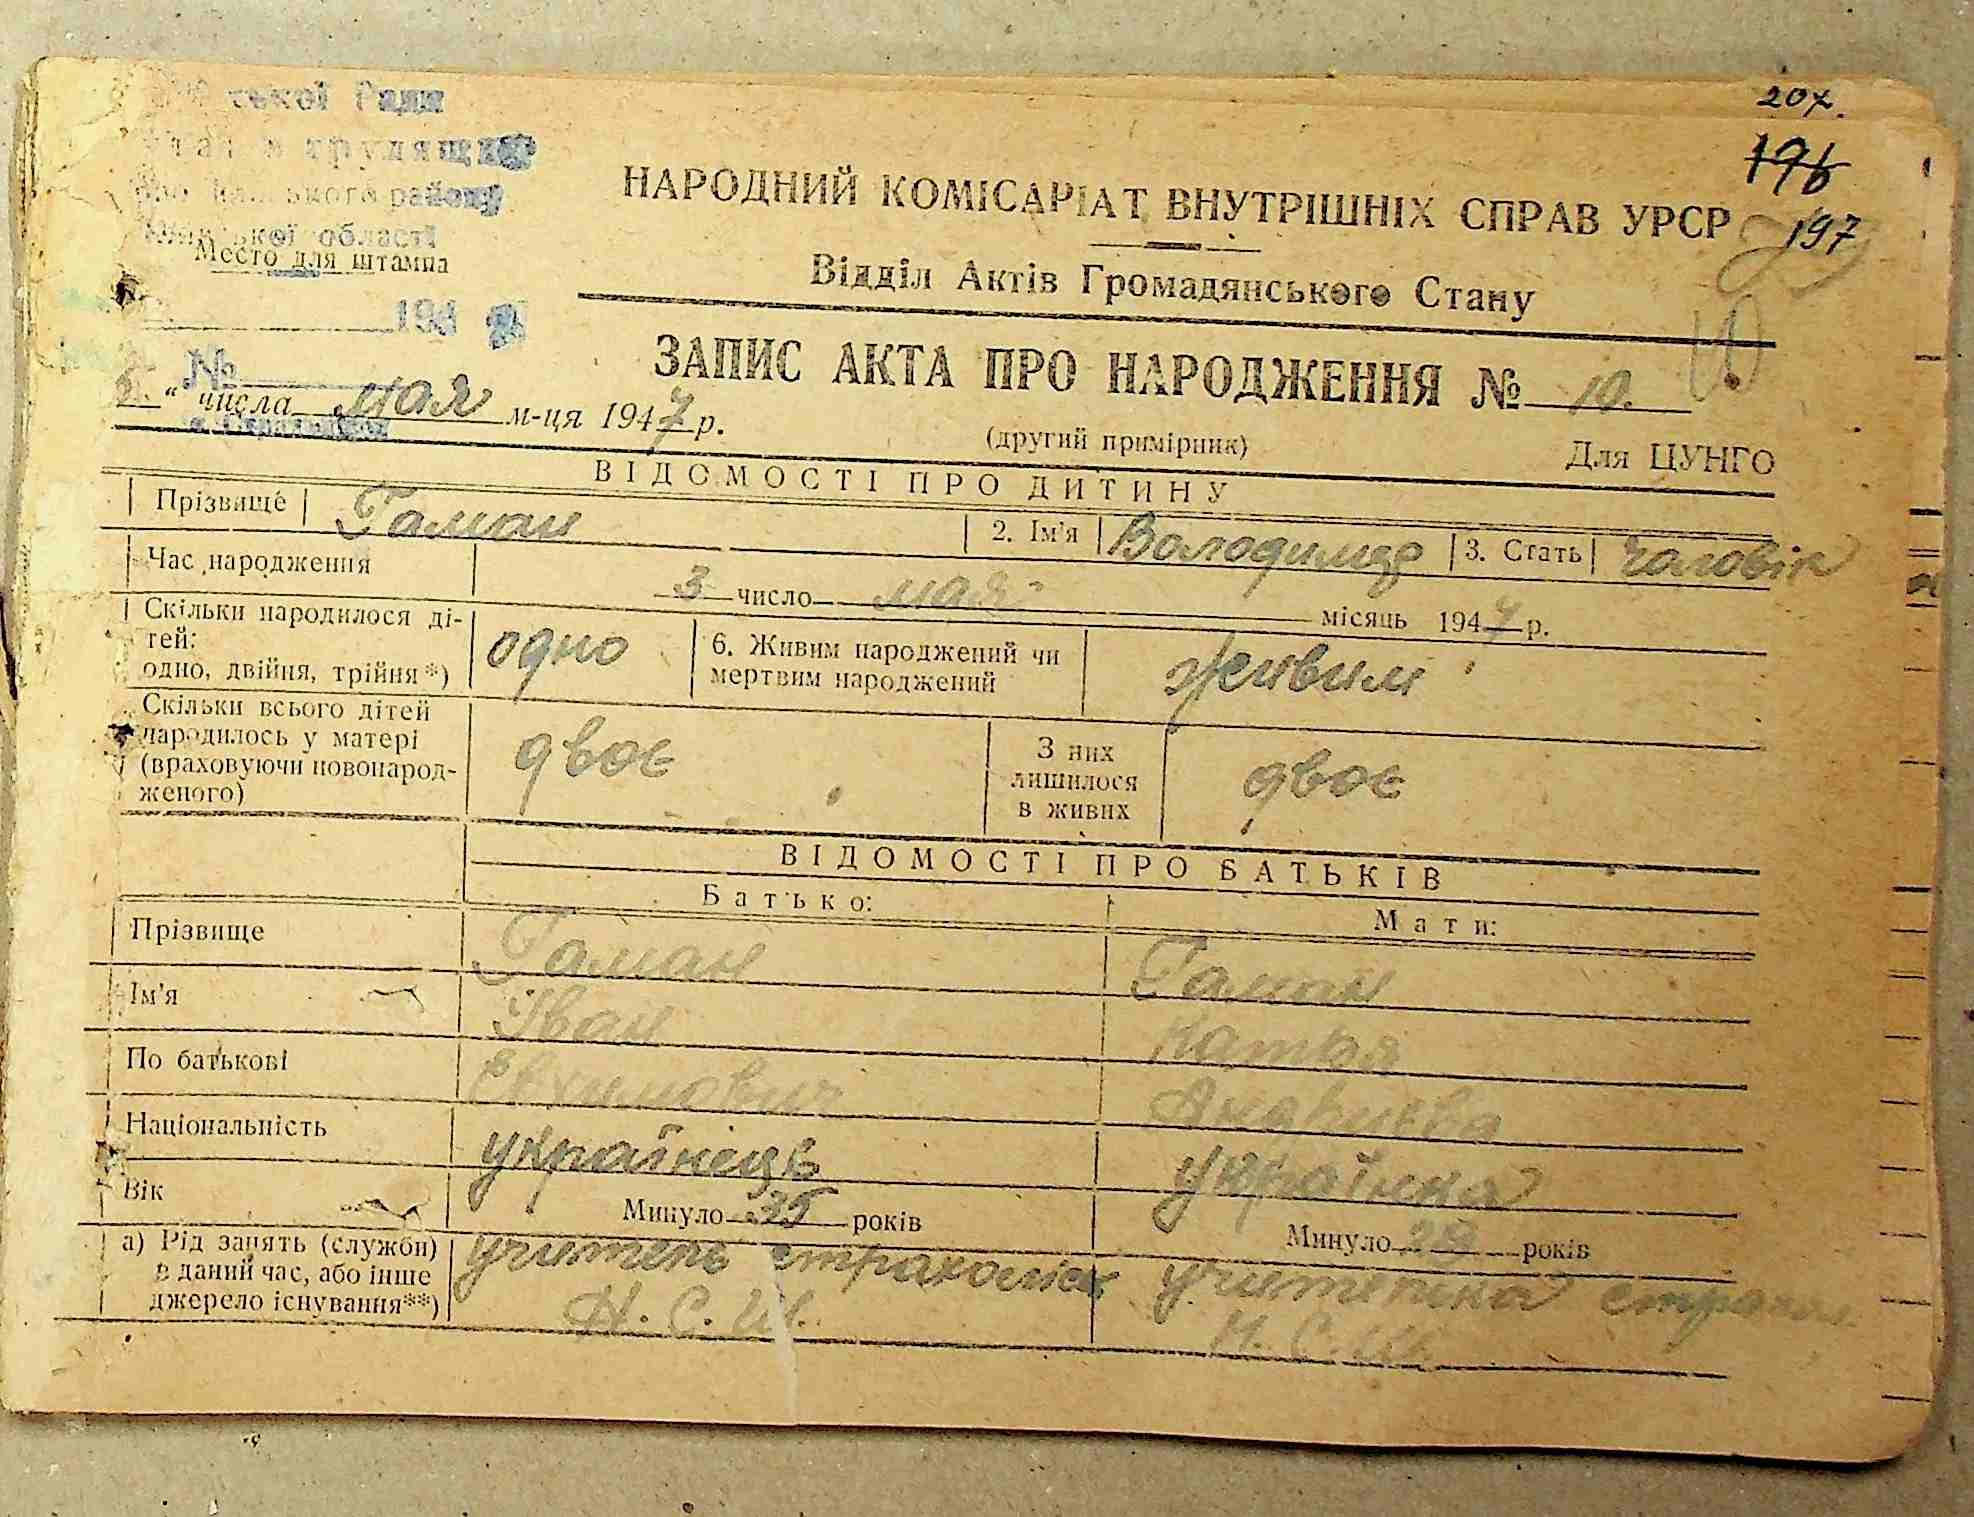 207.
196
197
ської Ради
трудящих
району
області
Место для штампа
194
№
НАРОДНИЙ КОМІСАРІАТ ВНУТРІШНІХ СПРАВ УРСР
Відділ Актів Громадянського Стану
ЗАПИС АКТА ПРО НАРОДЖЕННЯ № 10.
5 " числа мая м-ця 1947 р.
(другий примірник)
Для ЦУНГО
ВІДОМОСТІ ПРО ДИТИНУ
Прізвище Гаман 2. Ім'я Володимир 3. Стать чаловік
Час народження 3 число мая місяць 1947 р.
Скільки народилося ді-
тей:
одно, двійня, трійня*) одно 6. Живим народжений чи
мертвим народжений живим
Скільки всього дітей
народилось у матері
(враховуючи новонарод-
женого) двоє З них
лишилося
в живих двоє
ВІДОМОСТІ ПРО БАТЬКІВ
Батько: Мати:
Прізвище Гаман Гаман
Ім'я Іван Натья
По батькові Евхимович Андриєва
Національність українець українка
Вік Минуло 35 років Минуло 28 років
а) Рід занять (служби)
в даний час, або інше
джерело існування**) учитель страхоліск
Н. С. Ш.
учителка страхол.
Н. С. Ш.